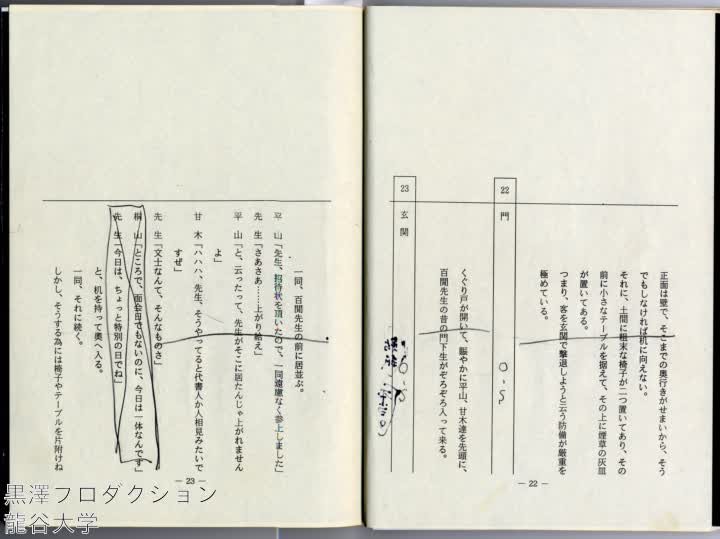 正面は壁で、そこまでの奥行きがせまいから、そう
でもしなければ机に向えない。
それに、土間に粗末な椅子が二つ置いてあり、その
前に小さなテーブルを据えて、その上に煙草の灰皿
が置いてある。
つまり、客を玄関で撃退しようと云う防備が厳重を
極めている。
22 門
0.5
くぐり戸が開いて、賑やかに平山、甘木達を先頭に、
百閒先生の昔の門下生がぞろぞろ入って来る。
23 玄関
― 22 ―
一同、百閒先生の前に居並ぶ。
平山「先生、招待状を頂いたので、一同遠慮なく参上しました」
先生「さあさあ……上がり給え」
平山「と、云ったって、先生がそこに居たんじゃ上がれません
よ」
甘木「ハハハ、先生、そうやってると代書人か人相見みたいで
すぜ」
先生「文士なんて、そんなものさ」
桐山「ところで、面会日でもないのに、今日は一体なんです」
先生「今日は、ちょっと特別の日でね」
と、机を持って奥へ入る。
一同、それに続く。
しかし、そうする為には椅子やテーブルを片附けね
― 23 ―
黒澤プロダクション
龍谷大学